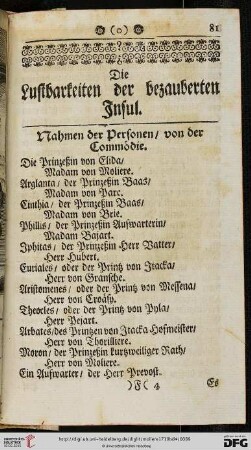 (o) 81
Die
Lustbarkeiten der bezauberten
Insul.
Nahmen der Personen / von der
Commödie.
Die Prinzeßin von Elida /
Madam von Moliere.
Arglanta / der Prinzeßin Baas /
Madam von Parc.
Cinthia / der Prinzeßin Baas /
Madam von Brie.
Phillis / der Prinzeßin Aufwarterin /
Madam Bazart.
Iphitas / der Prinzeßin Herr Vatter /
Herr Hubert.
Euriales / oder der Printz von Itacka /
Herr von Gransche.
Aristomenes / oder der Printz von Messena /
Herr von Croäsy.
Theocles / oder der Printz von Pyla /
Herr Bejart.
Arbates / des Printzen von Itacka Hofmeister /
Herr von Thorilliere.
Moron / der Prinzeßin kurtzweiliger Rath /
Herr von Moliere.
Ein Aufwarter / der Herr Prevost.
Es